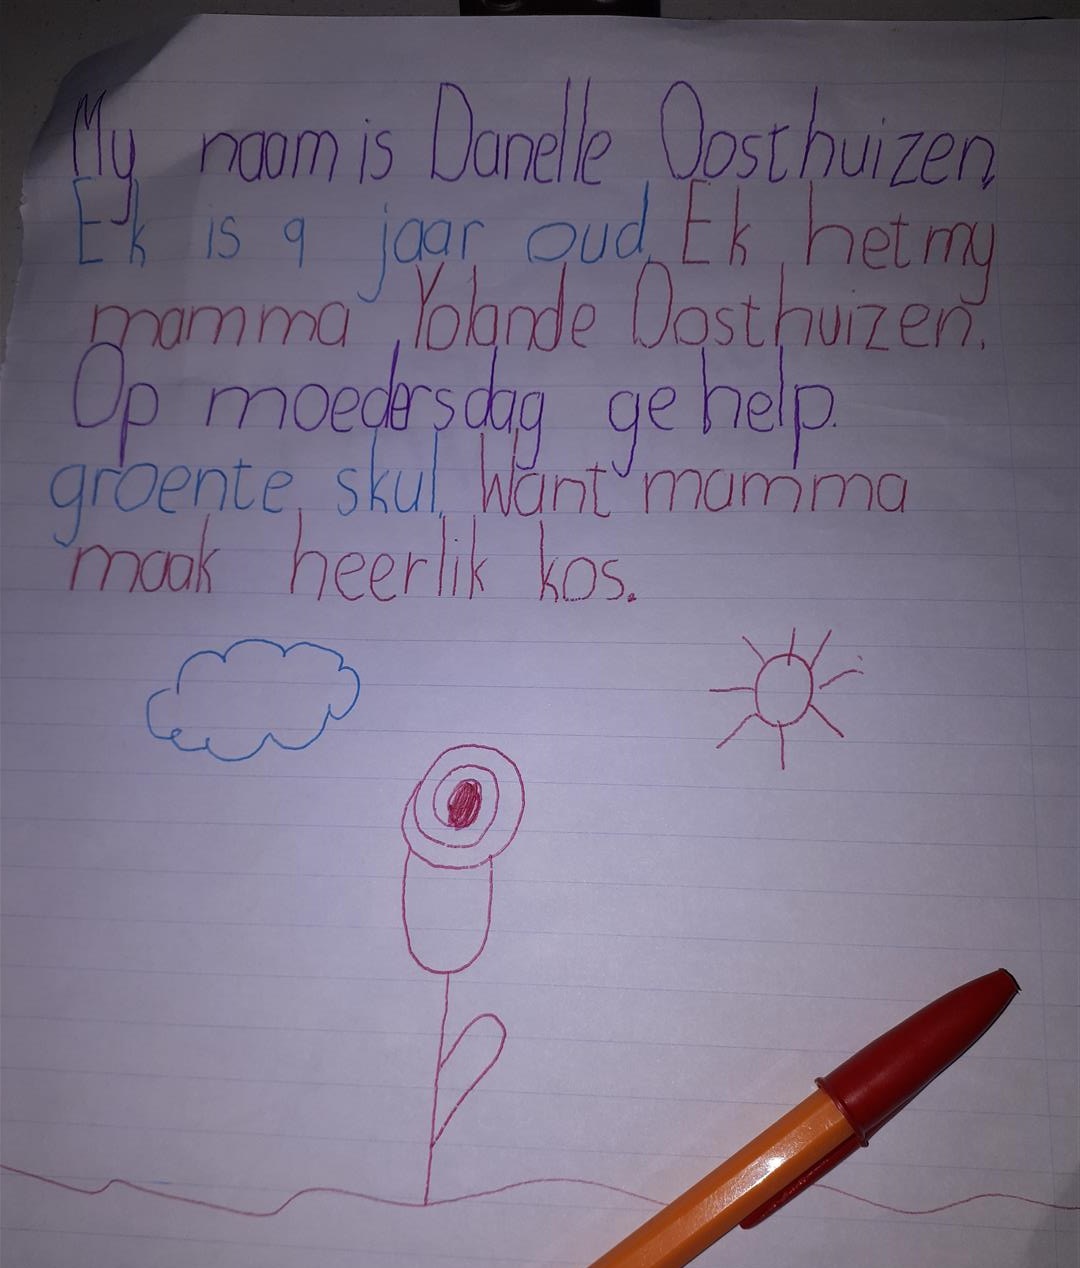 My naam is Danelle Oosthuizen,
Ek is 9 jaar oud. Ek het my
mamma, Yolande Oosthuizen.
Op moedersdag gehelp.
groente skul. Want mamma
maak heerlik kos.